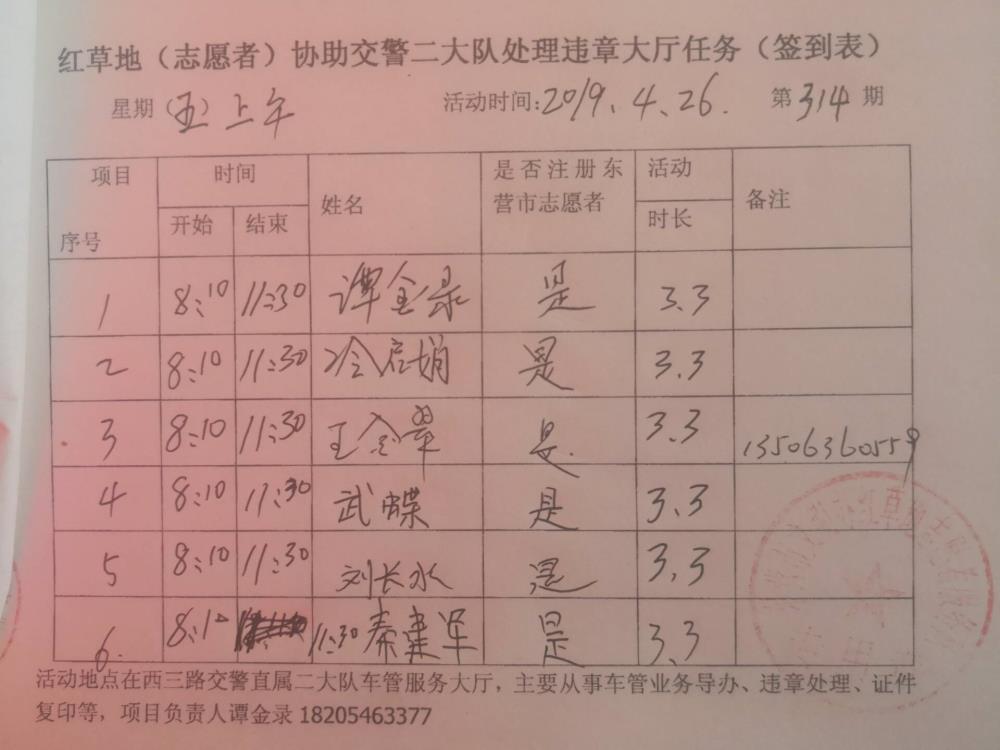 红草地（志愿者）协助交警二大队处理违章大厅任务（签到表）
星期（五）上午 活动时间:2019.4.26. 第314期
项目 时间 姓名 是否注册东营市志愿者 活动时长 备注
序号 开始 结束
1 8:10 11:30 谭金录 是 3.3
2 8:10 11:30 冷启娟 是 3.3
3 8:10 11:30 王金翠 是. 3.3 13506360559
4 8:10 11:30 武蝶 是 3.3
5 8:10 11:30 刘长水 是 3.3
6. 8:10 11:30 秦建军 是 3.3
活动地点在西三路交警直属二大队车管服务大厅，主要从事车管业务导办、违章处理、证件
复印等，项目负责人谭金录 18205463377